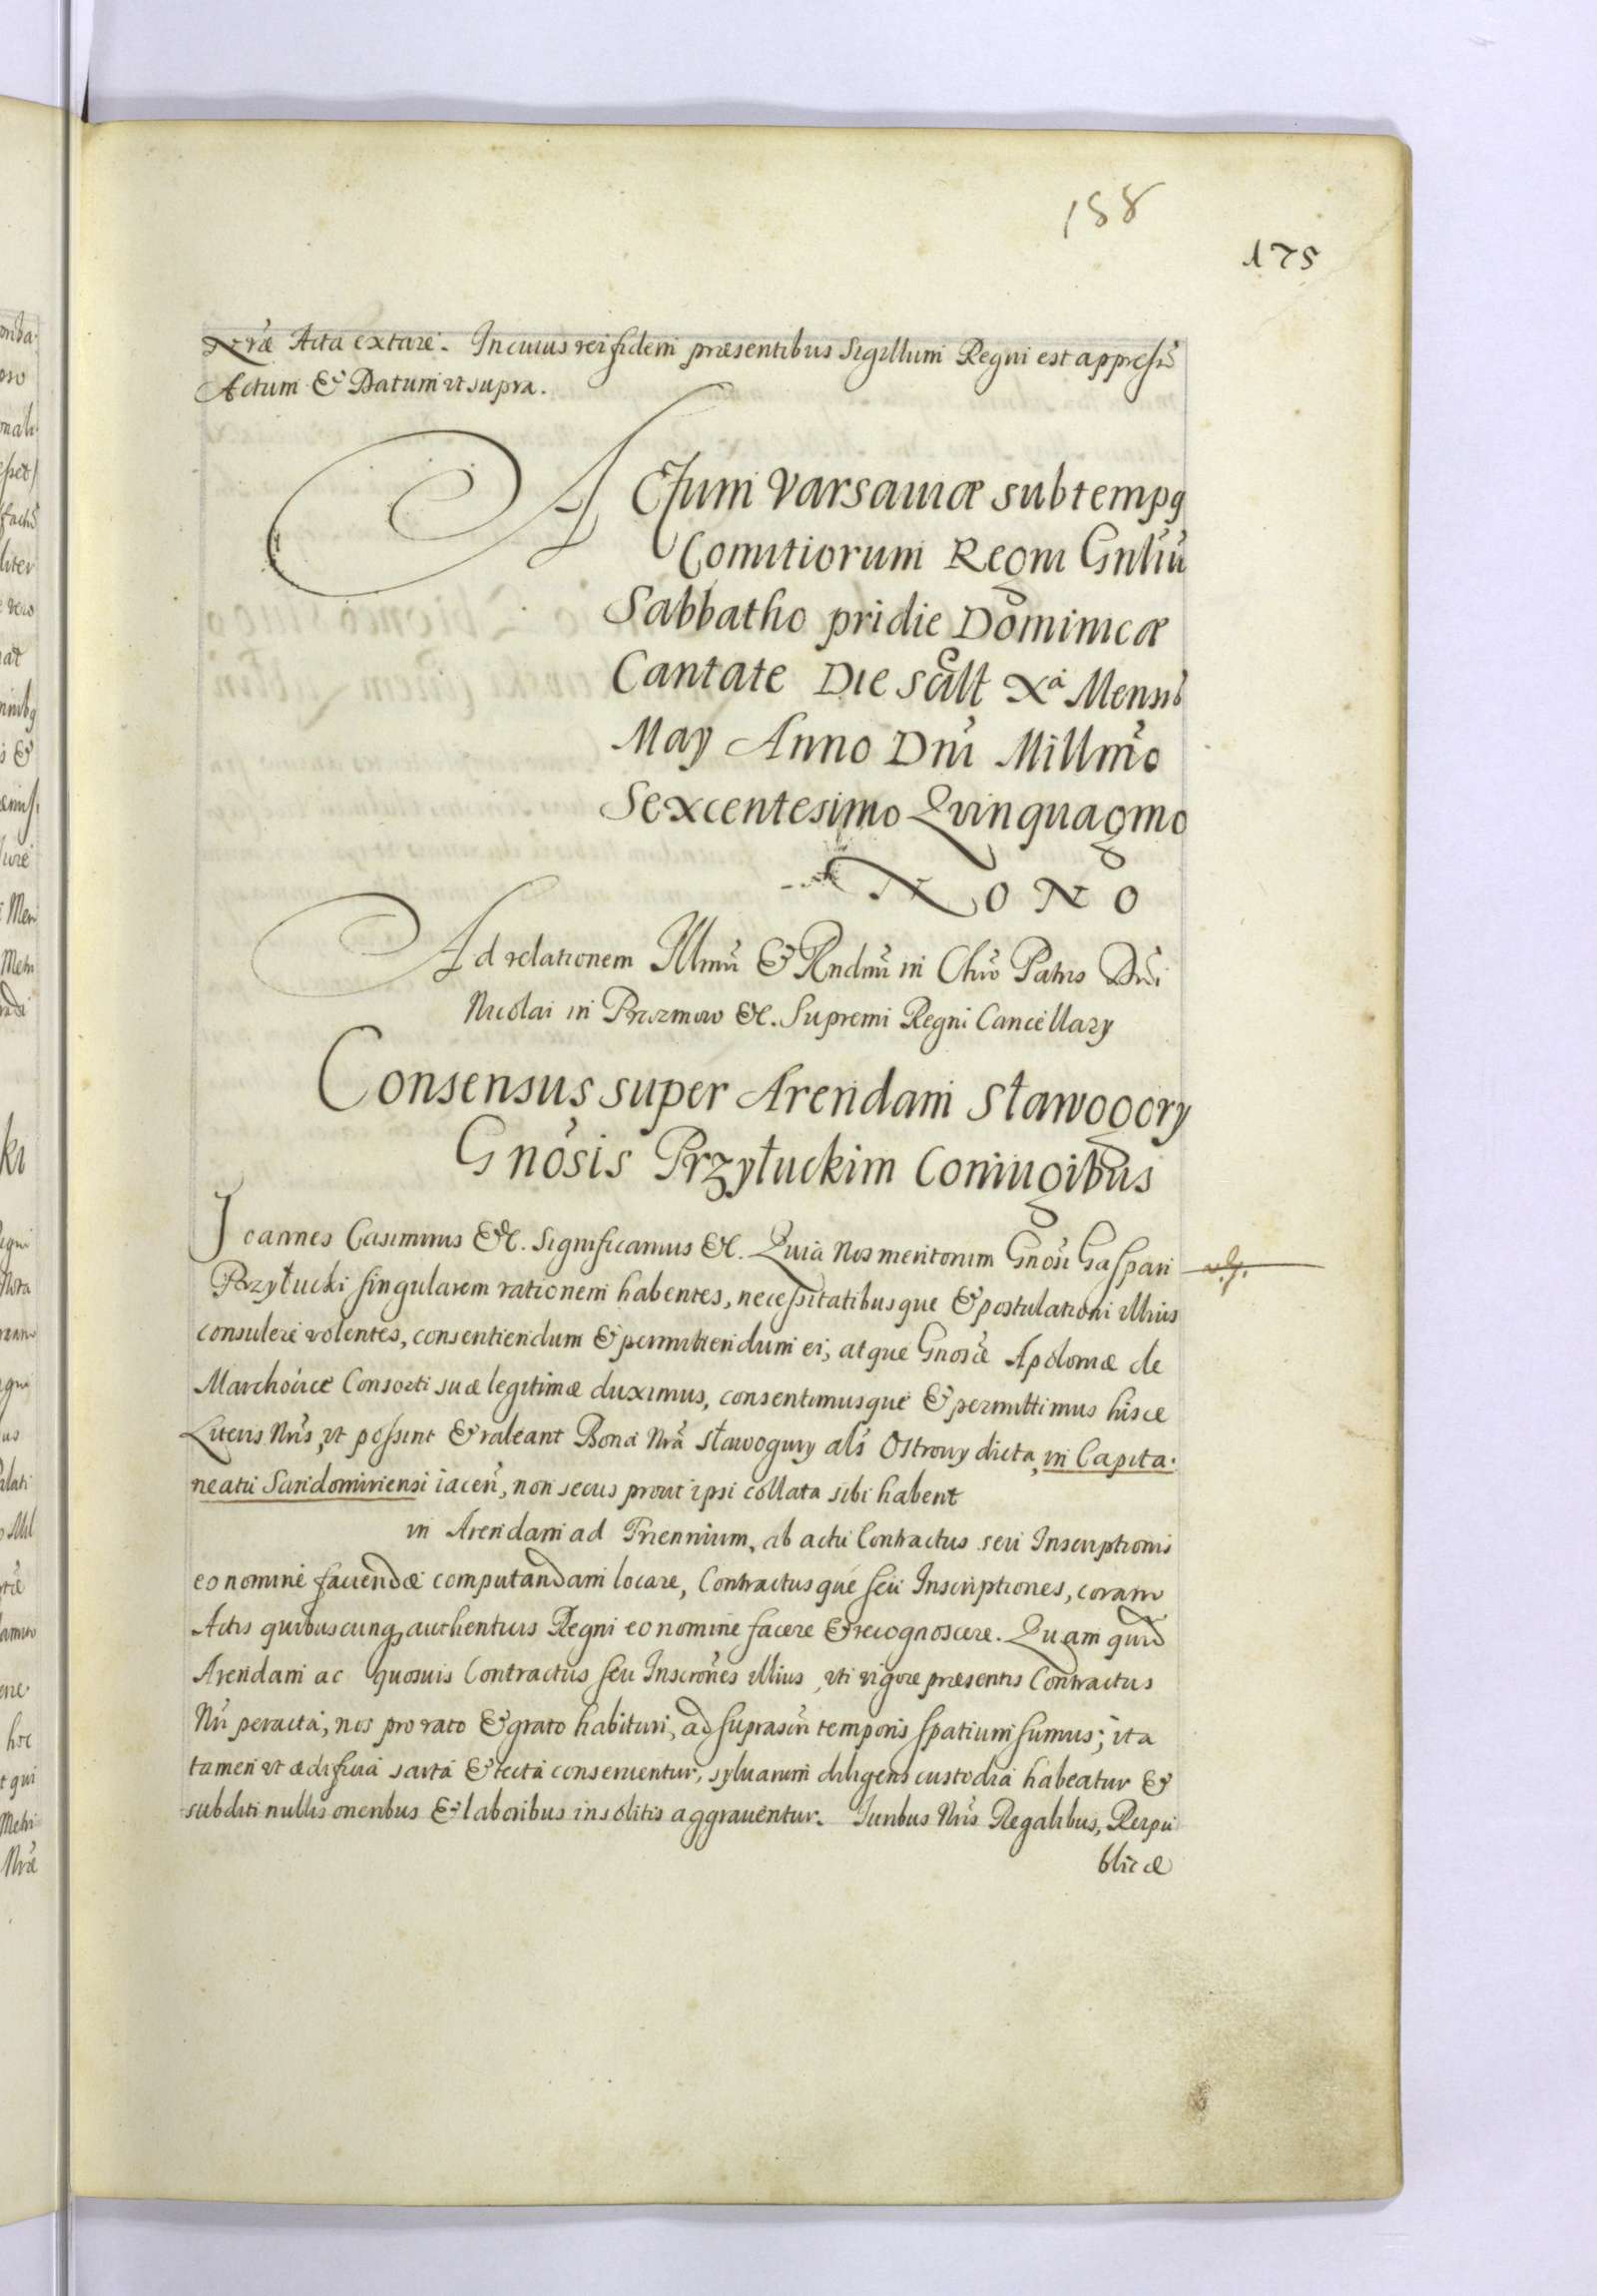 188
175
Nræ Acta extare. In cuius rei fidem præsentibus Sigillum Regni est appressũ
Actum & Datum ut supra.
ACtum Varsaviæ sub tempq
Comitiorum Regni Gnlĩu
Sabbatho pridie Dominicæ
Cantate Die sclt Xa Mensis
May Anno Dnĩ Millmõ
Sexcentesimo Qvinquagmo
NONO
Ad relationem Illmĩ & Rndmĩ in Chrõ Patris Dnĩ
Nicolai in Prazmow &c. Supremi Regni Cancellary
Consensus super Arendam Stawogory
Gnõsis Przyłuckim Coniugibus
Joannes Casimirus &c. Significamus &c. Quia Nos meritorum Gnosĩ Gaspari
Przyłucki singularem rationem habentes, necessitatibusque & postulationi illius
consulere volentes, consentiendum & permittendum ei, atque Gnosæ Apoloniæ de
Marchocice Consorti suæ legitimæ duximus, consentimusque & permittimus hisce
Literis Nrĩs, ut possint & valeant Bona Nrã Stawogury als Ostrowy dicta, in Capita-
neatu Sandomiriensi iaceñ, non secus prout ipsi collata sibi habent
in Arendam ad Triennium, ab actu Contractus seu Inscriptionis
eo nomine faciendæ computandam locare, Contractusque seu Inscriptiones, coram
Actis quibuscunq authenticis Regni eo nomine facere & recognoscere. Quam quid
Arendam ac quosvis Contractus seu Inscrones illius, uti vigore præsentis Contractus
Nrĩ peracta, nos pro rato & grato habituri, ad suprascrĩ temporis spatium sumus; ita
tamen ut ædificia sarta & tecta conserventur, sylvarum diligens custodia habeatur &
subditi nullis oneribus & laboribus insolitis aggraventur. Juribus Nrĩs Regalibus, Reipu
blicæ